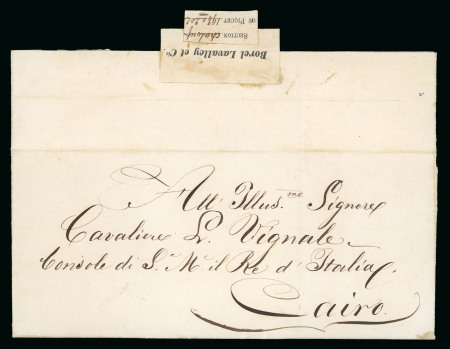 Borel Lavalley et Cie
SECTION Chalouf
DU PIQUET
All' Illus.me Signore
Cavaliere L. Vignale
Console di S. M. il Re d'Italia
Cairo.